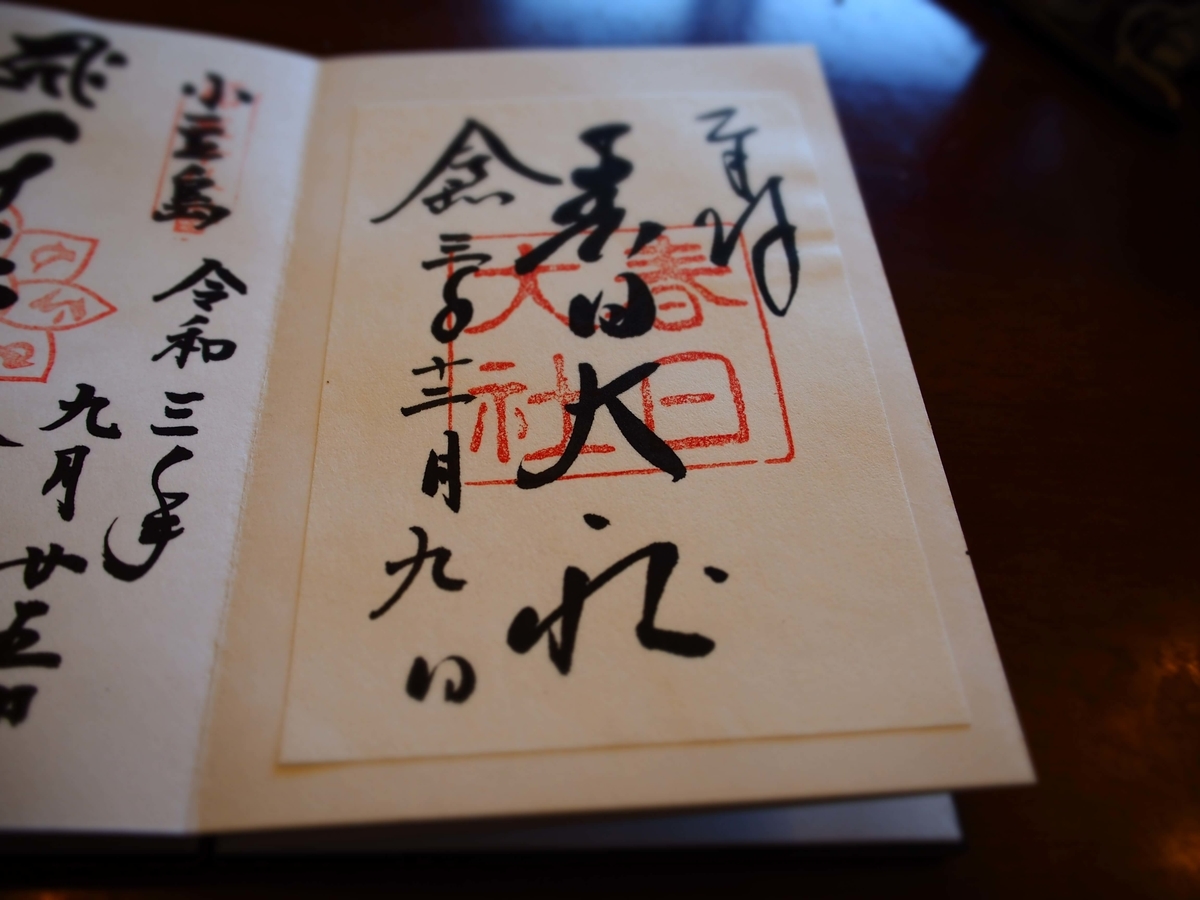 奉拝
春日大社
春日
大社
令和三年十二月九日
小豆島 令和三年
九月廿五日